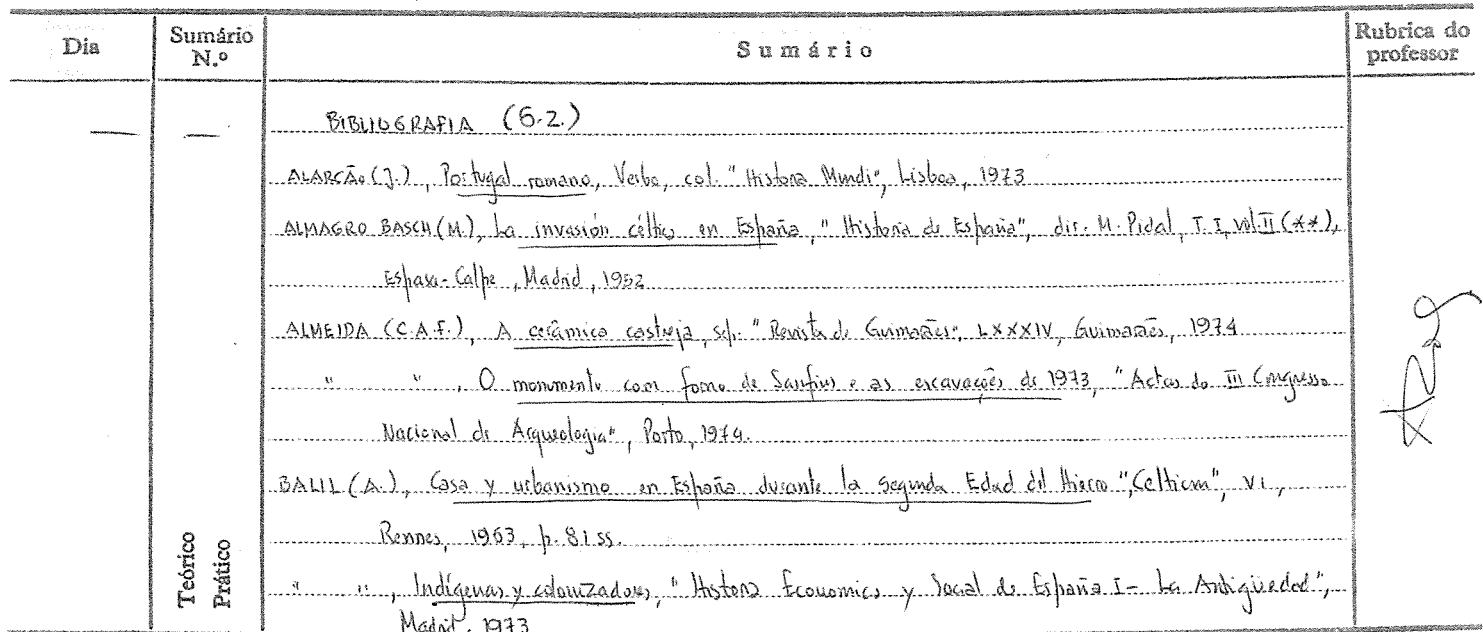 Dia Sumário N.º Sumário Rubrica do professor
— — BIBLIOGRAFIA (6.2.)
ALARCÃO (J.), Portugal romano, Verbo, col. "Historia Mundi", Lisboa, 1973
ALMAGRO BASCH (M.), La invasión céltica en España, "Historia de España", dir. M. Pidal, T. I, vol. II (**),
Espasa-Calpe, Madrid, 1952
ALMEIDA (C.A.F.), A cerâmica castreja, sep. "Revista de Guimarães", LXXXIV, Guimarães, 1974
" ", O monumento com forno de Sanfins e as escavações de 1973, "Actas do III Congresso
Nacional de Arqueologia", Porto, 1974.
BALIL (A.), Casa y urbanismo en España durante la Segunda Edad del Hierro, "Celticum", VI,
Rennes, 1963, p. 81 ss.
" ", Indígenas y colonizadores, "Historia Economica y Social de España I - La Antigüedad",
Madrid, 1973
Teórico
Prático